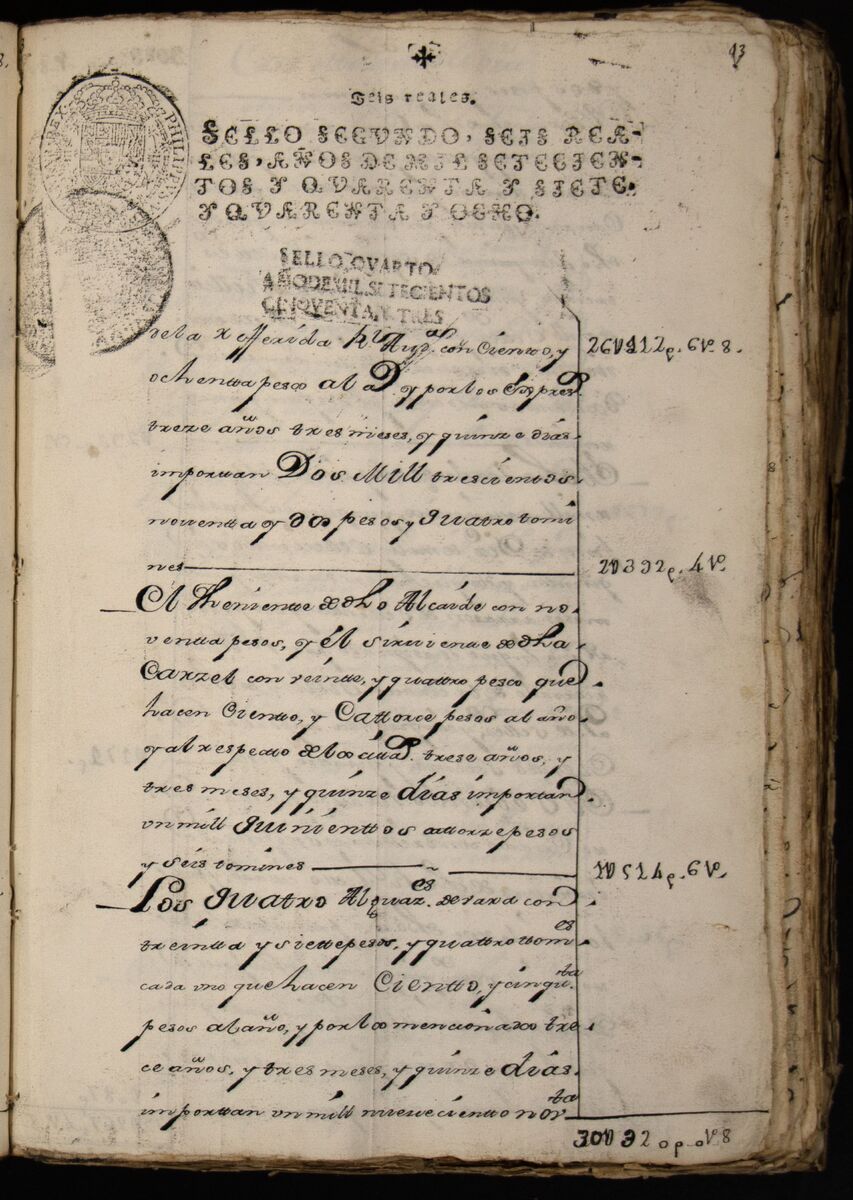 93
Seis reales.
SELLO SEGVNDO, SEIS REA-
LES, AÑOS DE MIL SETECIEN-
TOS Y QVARENTA Y SIETE,
Y QVARENTA Y OCHO.
PHILIPPVS
REX
SELLO QVARTO
AÑO DE MIL SETECIENTOS
CINQVENTA Y TRES
de la Rl Merida con Ciento, y
ochentta pesos al y por los
treze años tres meses, y quinze dias
importtan Dos Mill trescientos
noventta y dos pesos y quatro tomi
nes 2U392p. 4to.
El Theniente de dho Alcaide con no
ventta pesos, y el sirviente de dha
Carzel con veinte, y quattro pesos que
hacen Ciento, y Cattorce pesos al año
y al respecto de los trese años, y
tres meses, y quinze dias importan
un mill quinienttos attorze pesos
y seis tomines 1U514p. 6to.
Los quatro Alguaz.es de vara con
treintta y siette pesos, y quattro tom.es
cada uno que hacen Cientto, y cinqu.ta
pesos al año, y por los mencionados tre
ce años, y tres meses, y quinze dias
importtan un mill nuevecientto nov.ta